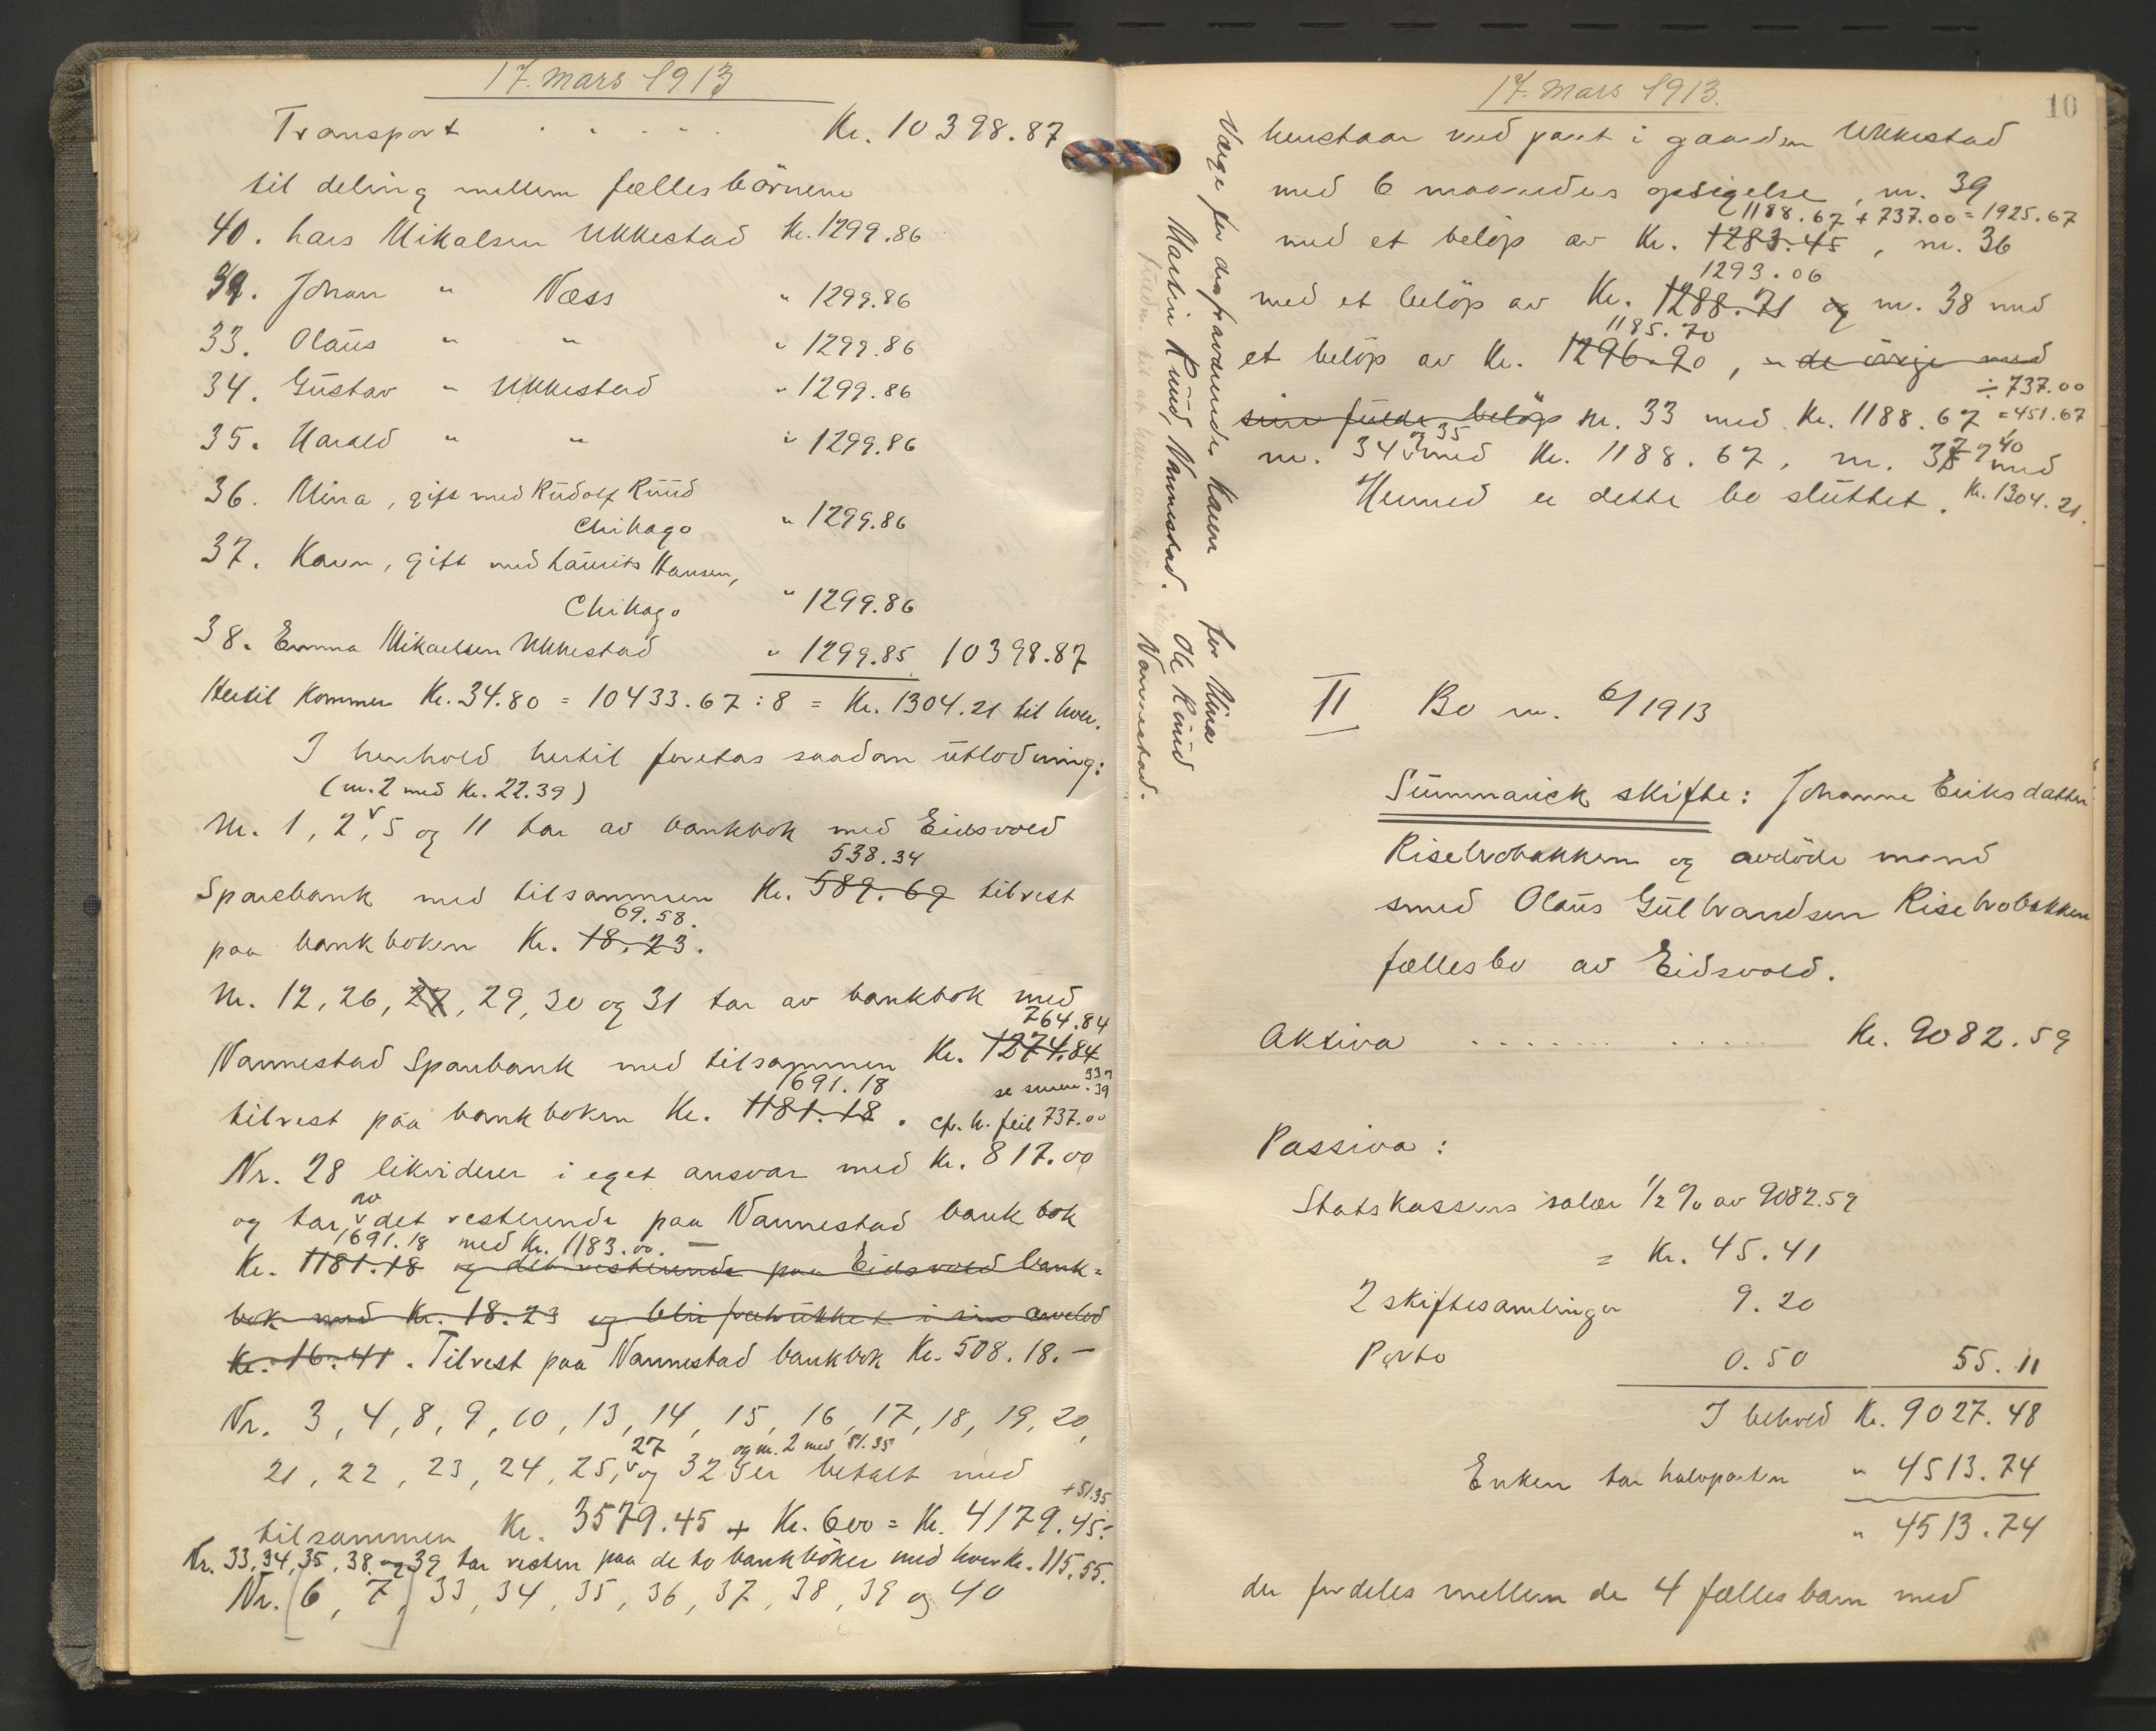 17. Mars 1913
Transport . . . . . Kr. 10398.87
til deling mellem fællesbörnene
40. Lars Mikalsen Ukkestad Kr. 1299.86
39. Johan " Næss " 1299.86
33. Olaüs " " " 1299.86
34. Güstav " Ukkestad " 1299.86
35. Harald " " " 1299.86
36. Mina, gift med Rüdolf Rüüd
Chikago " 1299.86
37. Karen, gift med Laürits Hansen,
Chikago " 1299.86
38. Emma Mikaelsen Ukkestad " 1299.85 10398.87
Hertil kommer Kr. 34.80 = 10433.67 : 8 = Kr. 1304.21 til hver.
I henhold hertil foretas saadan ütlodning:
(nr. 2 med Kr. 22.39)
Nr. 1, 2, 5 og 11 tar av bankbok med Eidsvold
538.34
Sparebank med tilsammen Kr. 589.69 tilrest
69.58.
paa bankboken Kr. 18.23.
Nr. 12, 26, 27, 29, 30 og 31 tar av bankbok med
764.84
Nannestad Sparebank med tilsammen Kr. 1274.84
1691.18
tilrest paa bankboken Kr. 1181.18. cfr. h. feil 737.00
Nr. 28 likviderer i eget ansvar med Kr. 817.00
og tar av det resterende paa Nannestad bankbok
1691.18 med Kr. 1183.00. —
Kr. 1181.18 og det resterende paa Eidsvold bank=
bok med Kr. 18.23 og blir fratrükket i sin arvelod
Kr. 16.41. Tilrest paa Nannestad bankbok Kr. 508.18. —
Nr. 3, 4, 8, 9, 10, 13, 14, 15, 16, 17, 18, 19, 20,
27 og nr. 2 med 51.35
21, 22, 23, 24, 25, og 32 er betalt med
+ 51.35
tilsammen Kr. 3579.45 + Kr. 600 = Kr. 4179.45.
Nr. 33, 34, 35, 38 og 39 tar resten paa de to bankböker med hver Kr. 115.55.
Nr. (6, 7,) 33, 34, 35, 36, 37, 38, 39 og 40
Værge for den fraværende Karen
Martin Rüüd, Nannestad.
for Mina
Ole Rüüd
Nannestad.
17. Mars 1913.
10
henstaar med pant i gaarden Ukkestad
med 6 maaneders opsigelse, nr. 39
1188.67 + 737.00 = 1925.67
med et belöp av Kr. 1283.45, nr. 36
1293.06
med et belöp av Kr. 1288.71 og nr. 38 med
1185.70
et belöp av Kr. 1296.90, de övrige med
÷ 737.00
sine fulde belöp nr. 33 med Kr. 1188.67 = 451.67
og 35
nr. 34 med Kr. 1188.67, nr. 37 og 40 med
Hermed er dette bo slüttet. Kr. 1304.21.
II Bo nr. 6/1913
Sümmarisk skifte: Johanne Eriksdatter
Risebrobakken og avdöde mand
smed Olaüs Gülbrandsen Risebrobakken
fællesbo av Eidsvold.
Aktiva . . . . . . . . . . Kr. 9082.59
Passiva:
Statskassens salær 1/2 % av 9082.59
= Kr. 45.41
2 skiftesamlinger 9.20
Porto 0.50 55.11
I behold Kr. 9027.48
Enken tar halvparten " 4513.74
" 4513.74
der fordeles mellem de 4 fællesbarn med